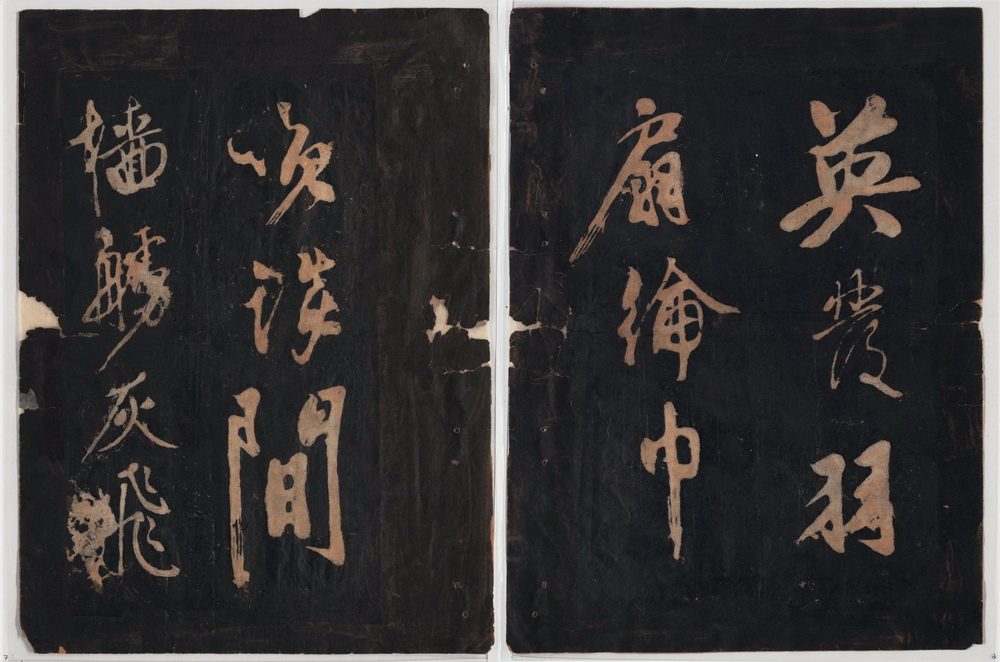 英發羽
扇綸巾
笑談間
檣艣灰飛